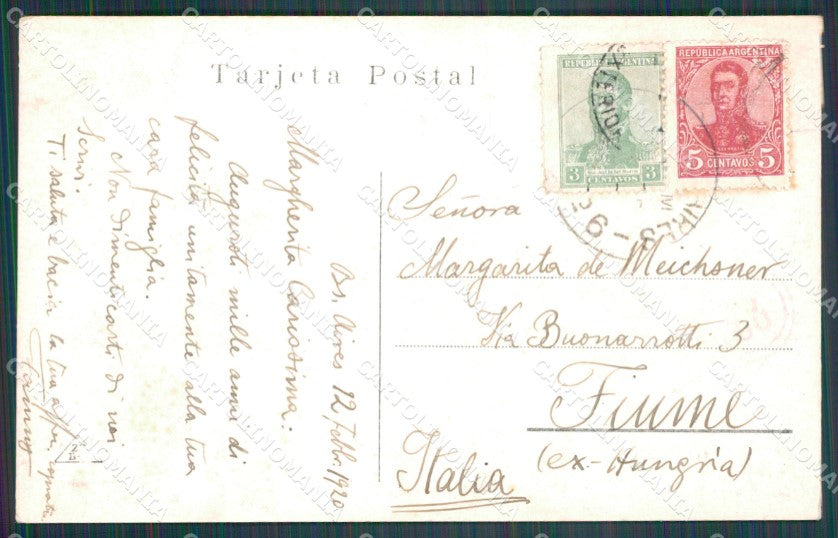 Tarjeta Postal
REPÚBLICA ARGENTINA
3 CENTAVOS 3
EXTERIOR
REPÚBLICA ARGENTINA
5 CENTAVOS 5
AIRES - 9
Bs. Aires 12 Febb. 1920
Margherita Carissima.
Auguroti mille anni di
felicità unitamente alla tua
cara famiglia.
Non dimenticarti di noi
Scrivi.
Ti saluta e bacia la tua aff.
Señora
Margarita de Meichsner
Via Buonarrotti 3
Fiume
(ex-Hungria)
Italia
CARTOLINOMANIA